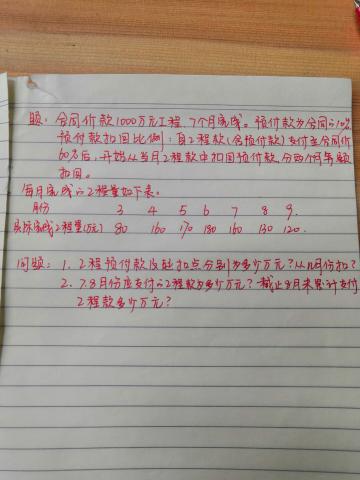 题: 合同价款1000万元工程, 7个月完成。预付款为合同的10%,
预付款扣回比例: 自工程款(含预付款)支付至合同价
60%后, 开始从当月工程款中扣回预付款, 分两个月等额
扣回。
每月完成的工程量如下表:
月份 3 4 5 6 7 8 9.
实际完成工程量(万元) 80 160 170 180 160 130 120.
问题: 1. 工程预付款及起扣点分别为多少万元? 从几月份扣?
2. 7.8月份应支付的工程款为多少万元? 截止8月末累计支付
工程款多少万元?